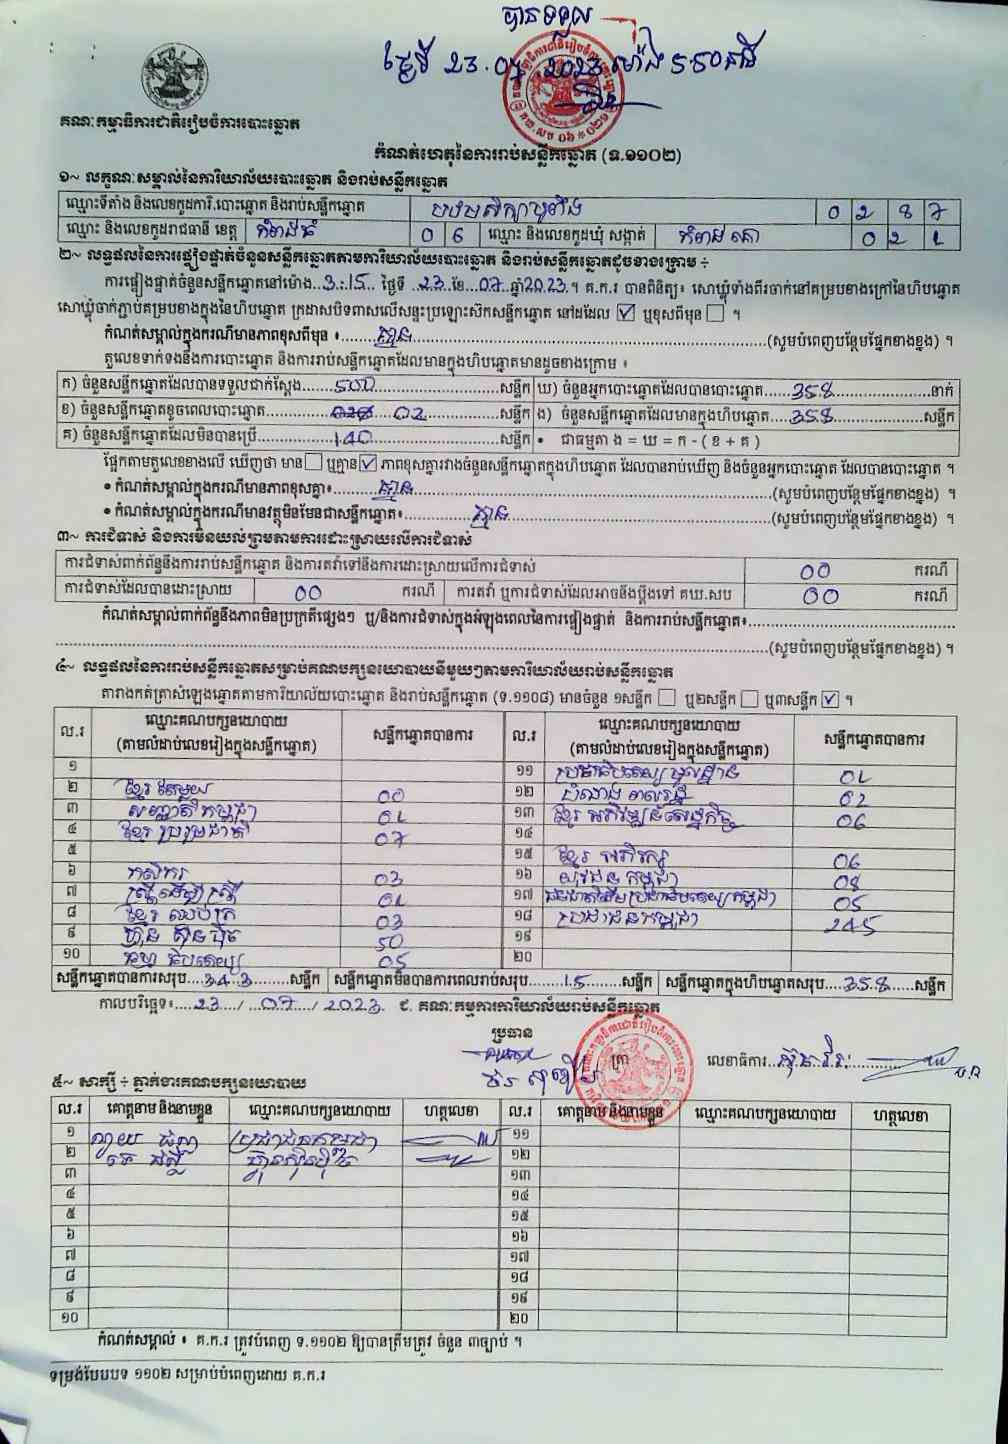 បានទទួល
ថ្ងៃទី 23.07 2023 ម៉ោង 5:50នាទី
គណៈកម្មាធិការជាតិរៀបចំការបោះឆ្នោត
កំណត់ហេតុនៃការរាប់សន្លឹកឆ្នោត (ទ.១១០២)
១~ លក្ខណៈសម្គាល់នៃការិយាល័យបោះឆ្នោត និងរាប់សន្លឹកឆ្នោត
ឈ្មោះទីតាំង និងលេខកូដការិ.បោះឆ្នោត និងរាប់សន្លឹកឆ្នោត 0 2 8 7
ឈ្មោះ និងលេខកូដរាជធានី ខេត្ត កំពង់ធំ 0 6 ឈ្មោះ និងលេខកូដឃុំ សង្កាត់ 0 2 1
២~ លទ្ធផលនៃការផ្ទៀងផ្ទាត់ចំនួនសន្លឹកឆ្នោតតាមការិយាល័យបោះឆ្នោត និងរាប់សន្លឹកឆ្នោតដូចខាងក្រោម ÷
ការផ្ទៀងផ្ទាត់ចំនួនសន្លឹកឆ្នោតនៅម៉ោង..3:15..ថ្ងៃទី..23..ខែ...07...ឆ្នាំ2023.។ គ.ក.រ បានពិនិត្យ៖ សោឃ្លុំទាំងពីរចាក់នៅគម្របខាងក្រៅនៃហិបឆ្នោត
សោឃ្លុំចាក់ភ្ជាប់គម្របខាងក្នុងនៃហិបឆ្នោត ក្រដាសបិទពាសលើសន្ទះប្រឡោះស៊កសន្លឹកឆ្នោត នៅដដែល ☑ ឬខុសពីមុន ☐ ។
កំណត់សម្គាល់ក្នុងករណីមានភាពខុសពីមុន ៖......គ្មាន......(សូមបំពេញបន្ថែមផ្នែកខាងខ្នង) ។
តួលេខទាក់ទងនឹងការបោះឆ្នោត និងការរាប់សន្លឹកឆ្នោតដែលមានក្នុងហិបឆ្នោតមានដូចខាងក្រោម ៖
ក) ចំនួនសន្លឹកឆ្នោតដែលបានទទួលជាក់ស្តែង......500......សន្លឹក ឃ) ចំនួនអ្នកបោះឆ្នោតដែលបានបោះឆ្នោត......358......នាក់
ខ) ចំនួនសន្លឹកឆ្នោតខូចពេលបោះឆ្នោត...... 02......សន្លឹក ង) ចំនួនសន្លឹកឆ្នោតដែលមានក្នុងហិបឆ្នោត......358......សន្លឹក
គ) ចំនួនសន្លឹកឆ្នោតដែលមិនបានប្រើ......140......សន្លឹក • ជាធម្មតា ង = ឃ = ក - ( ខ + គ )
ផ្អែកតាមតួលេខខាងលើ ឃើញថា មាន☐ ឬគ្មាន☑ ភាពខុសគ្នារវាងចំនួនសន្លឹកឆ្នោតក្នុងហិបឆ្នោត ដែលបានរាប់ឃើញ និងចំនួនអ្នកបោះឆ្នោត ដែលបានបោះឆ្នោត ។
• កំណត់សម្គាល់ក្នុងករណីមានភាពខុសគ្នា៖......គ្មាន......(សូមបំពេញបន្ថែមផ្នែកខាងខ្នង) ។
• កំណត់សម្គាល់ក្នុងករណីមានវត្ថុមិនមែនជាសន្លឹកឆ្នោត៖......គ្មាន......(សូមបំពេញបន្ថែមផ្នែកខាងខ្នង) ។
៣~ ការជំទាស់ និងការមិនយល់ព្រមតាមការដោះស្រាយលើការជំទាស់
ការជំទាស់ពាក់ព័ន្ធនឹងការរាប់សន្លឹកឆ្នោត និងការតវ៉ាទៅនឹងការដោះស្រាយលើការជំទាស់ 00 ករណី
ការជំទាស់ដែលបានដោះស្រាយ 00 ករណី ការតវ៉ា ឬការជំទាស់ដែលអាចនឹងប្តឹងទៅ គឃ.សប 00 ករណី
កំណត់សម្គាល់ពាក់ព័ន្ធនឹងភាពមិនប្រក្រតីផ្សេងៗ ឬ/និងការជំទាស់ក្នុងអំឡុងពេលនៃការផ្ទៀងផ្ទាត់ និងការរាប់សន្លឹកឆ្នោត៖......
......(សូមបំពេញបន្ថែមផ្នែកខាងខ្នង) ។
៤~ លទ្ធផលនៃការរាប់សន្លឹកឆ្នោតសម្រាប់គណបក្សនយោបាយនីមួយៗតាមការិយាល័យរាប់សន្លឹកឆ្នោត
តារាងកត់ត្រាសំឡេងឆ្នោតតាមការិយាល័យបោះឆ្នោត និងរាប់សន្លឹកឆ្នោត (ទ.១១០៨) មានចំនួន ១សន្លឹក ☐ ឬ២សន្លឹក ☐ ឬ៣សន្លឹក ☑ ។
ល.រ ឈ្មោះគណបក្សនយោបាយ (តាមលំដាប់លេខរៀងក្នុងសន្លឹកឆ្នោត) សន្លឹកឆ្នោតបានការ ល.រ ឈ្មោះគណបក្សនយោបាយ (តាមលំដាប់លេខរៀងក្នុងសន្លឹកឆ្នោត) សន្លឹកឆ្នោតបានការ
១ ១១ ប្រជាធិបតេយ្យមូលដ្ឋាន 01
២ ខ្មែរតែមួយ 00 ១២ 02
៣ សញ្ជាតិកម្ពុជា 01 ១៣ ខ្មែរអភិវឌ្ឍន៍សេដ្ឋកិច្ច 06
៤ ខ្មែររួបរួមជាតិ 07 ១៤
៥ ១៥ ខ្មែរអភិរក្ស 06
៦ កសិករ 03 ១៦ យុវជនកម្ពុជា 08
៧ ស្ត្រីដើម្បីស្ត្រី 01 ១៧ 05
៨ ខ្មែរឈប់ក្រ 03 ១៨ ប្រជាជនកម្ពុជា 245
៩ ហ្វ៊ុនស៊ិនប៉ិច 50 ១៩
១០ 05 ២០
សន្លឹកឆ្នោតបានការសរុប...343......សន្លឹក សន្លឹកឆ្នោតមិនបានការពេលរាប់សរុប......15......សន្លឹក សន្លឹកឆ្នោតក្នុងហិបឆ្នោតសរុប...358......សន្លឹក
កាលបរិច្ឆេទ៖....23..../....07..../ 2023. ជ. គណៈកម្មការការិយាល័យរាប់សន្លឹកឆ្នោត
ប្រធាន
ត្រា លេខាធិការ
៥~ សាក្សី ÷ ភ្នាក់ងារគណបក្សនយោបាយ
ល.រ គោត្តនាម និងនាមខ្លួន ឈ្មោះគណបក្សនយោបាយ ហត្ថលេខា ល.រ គោត្តនាម និងនាមខ្លួន ឈ្មោះគណបក្សនយោបាយ ហត្ថលេខា
១ ប្រជាជនកម្ពុជា ១១
២ ហ្វ៊ុនស៊ិនប៉ិច ១២
៣ ១៣
៤ ១៤
៥ ១៥
៦ ១៦
៧ ១៧
៨ ១៨
៩ ១៩
១០ ២០
កំណត់សម្គាល់ ៖ គ.ក.រ ត្រូវបំពេញ ទ.១១០២ ឱ្យបានត្រឹមត្រូវ ចំនួន ៣ច្បាប់ ។
ទម្រង់បែបបទ ១១០២ សម្រាប់បំពេញដោយ គ.ក.រ